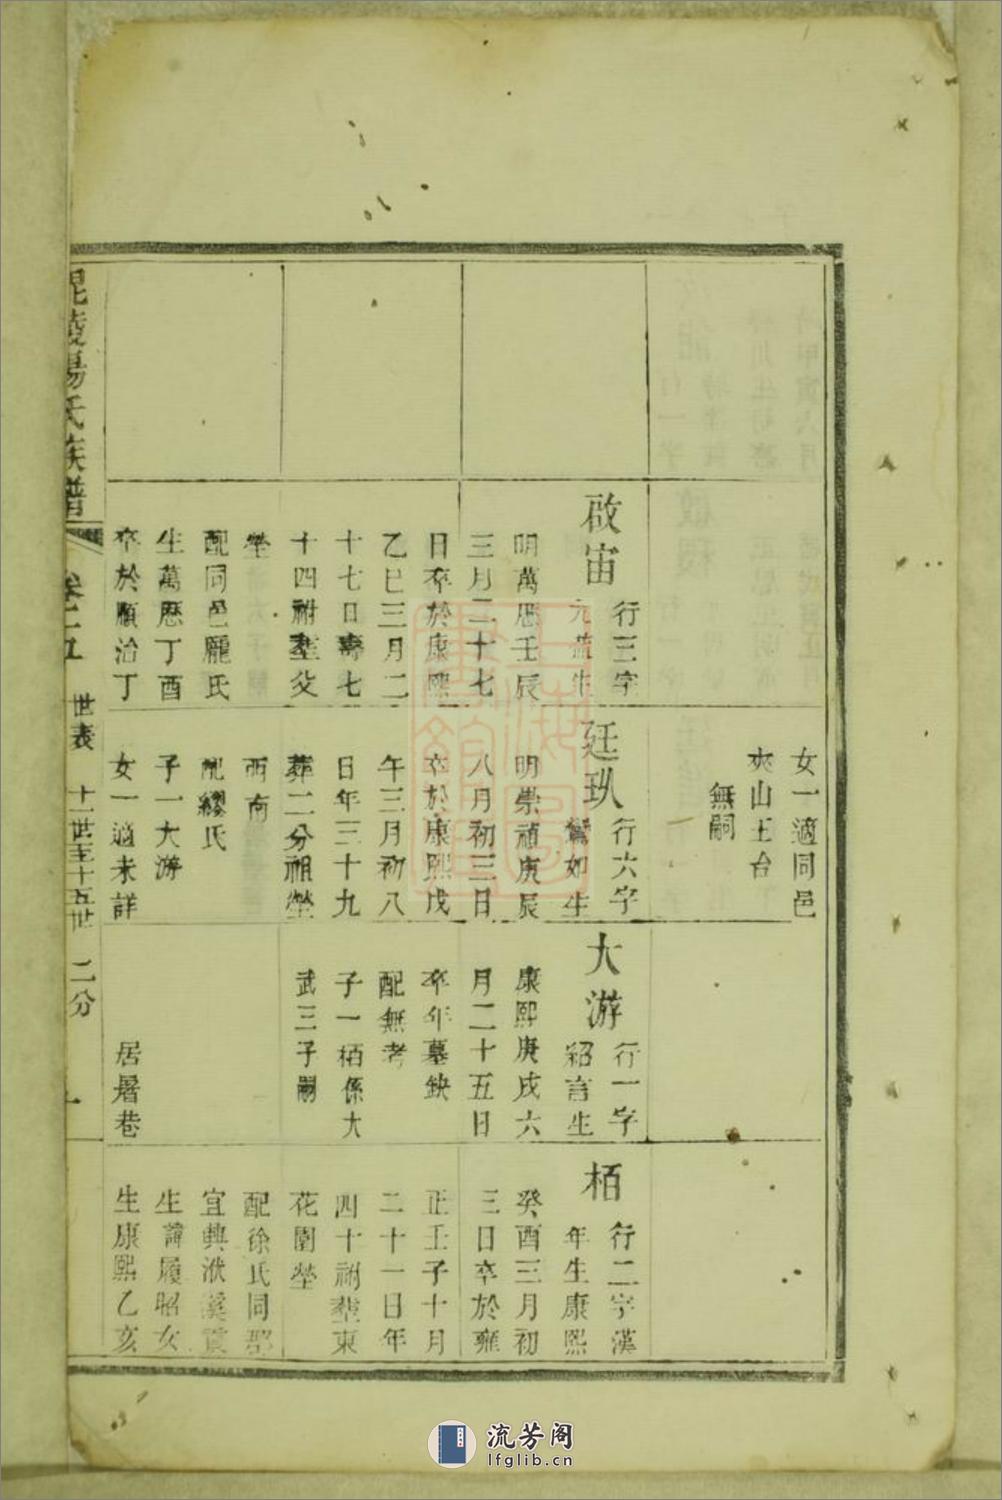 女一適同邑
夾山王台
無嗣
啟宙
行三字
元流生
明萬厯壬辰
三月二十七
日卒於康熙
乙巳三月二
十七日壽七
十四祔塟父
塋
配同邑龐氏
生萬厯丁酉
卒於順治丁
廷㺵
行六字
鶴如生
明崇禎庚辰
八月初三日
卒於康熙戊
午三月初八
日年三十九
葬二分祖塋
西南
配繆氏
子一大游
女一適未詳
大游
行一字
紹言生
康熙庚戌六
月二十五日
卒年墓缺
配無考
子一栢係大
武三子嗣
居暑巷
栢
行二字漢
年生康熙
癸酉三月初
三日卒於雍
正壬子十月
二十一日年
四十祔塟東
花園塋
配徐氏同郡
宜興洑溪貢
生諱履昭女
生康熙乙亥
毘陵楊氏族譜
卷二五
世表
十一世至十五世
二分
流芳阁
lfglib.cn